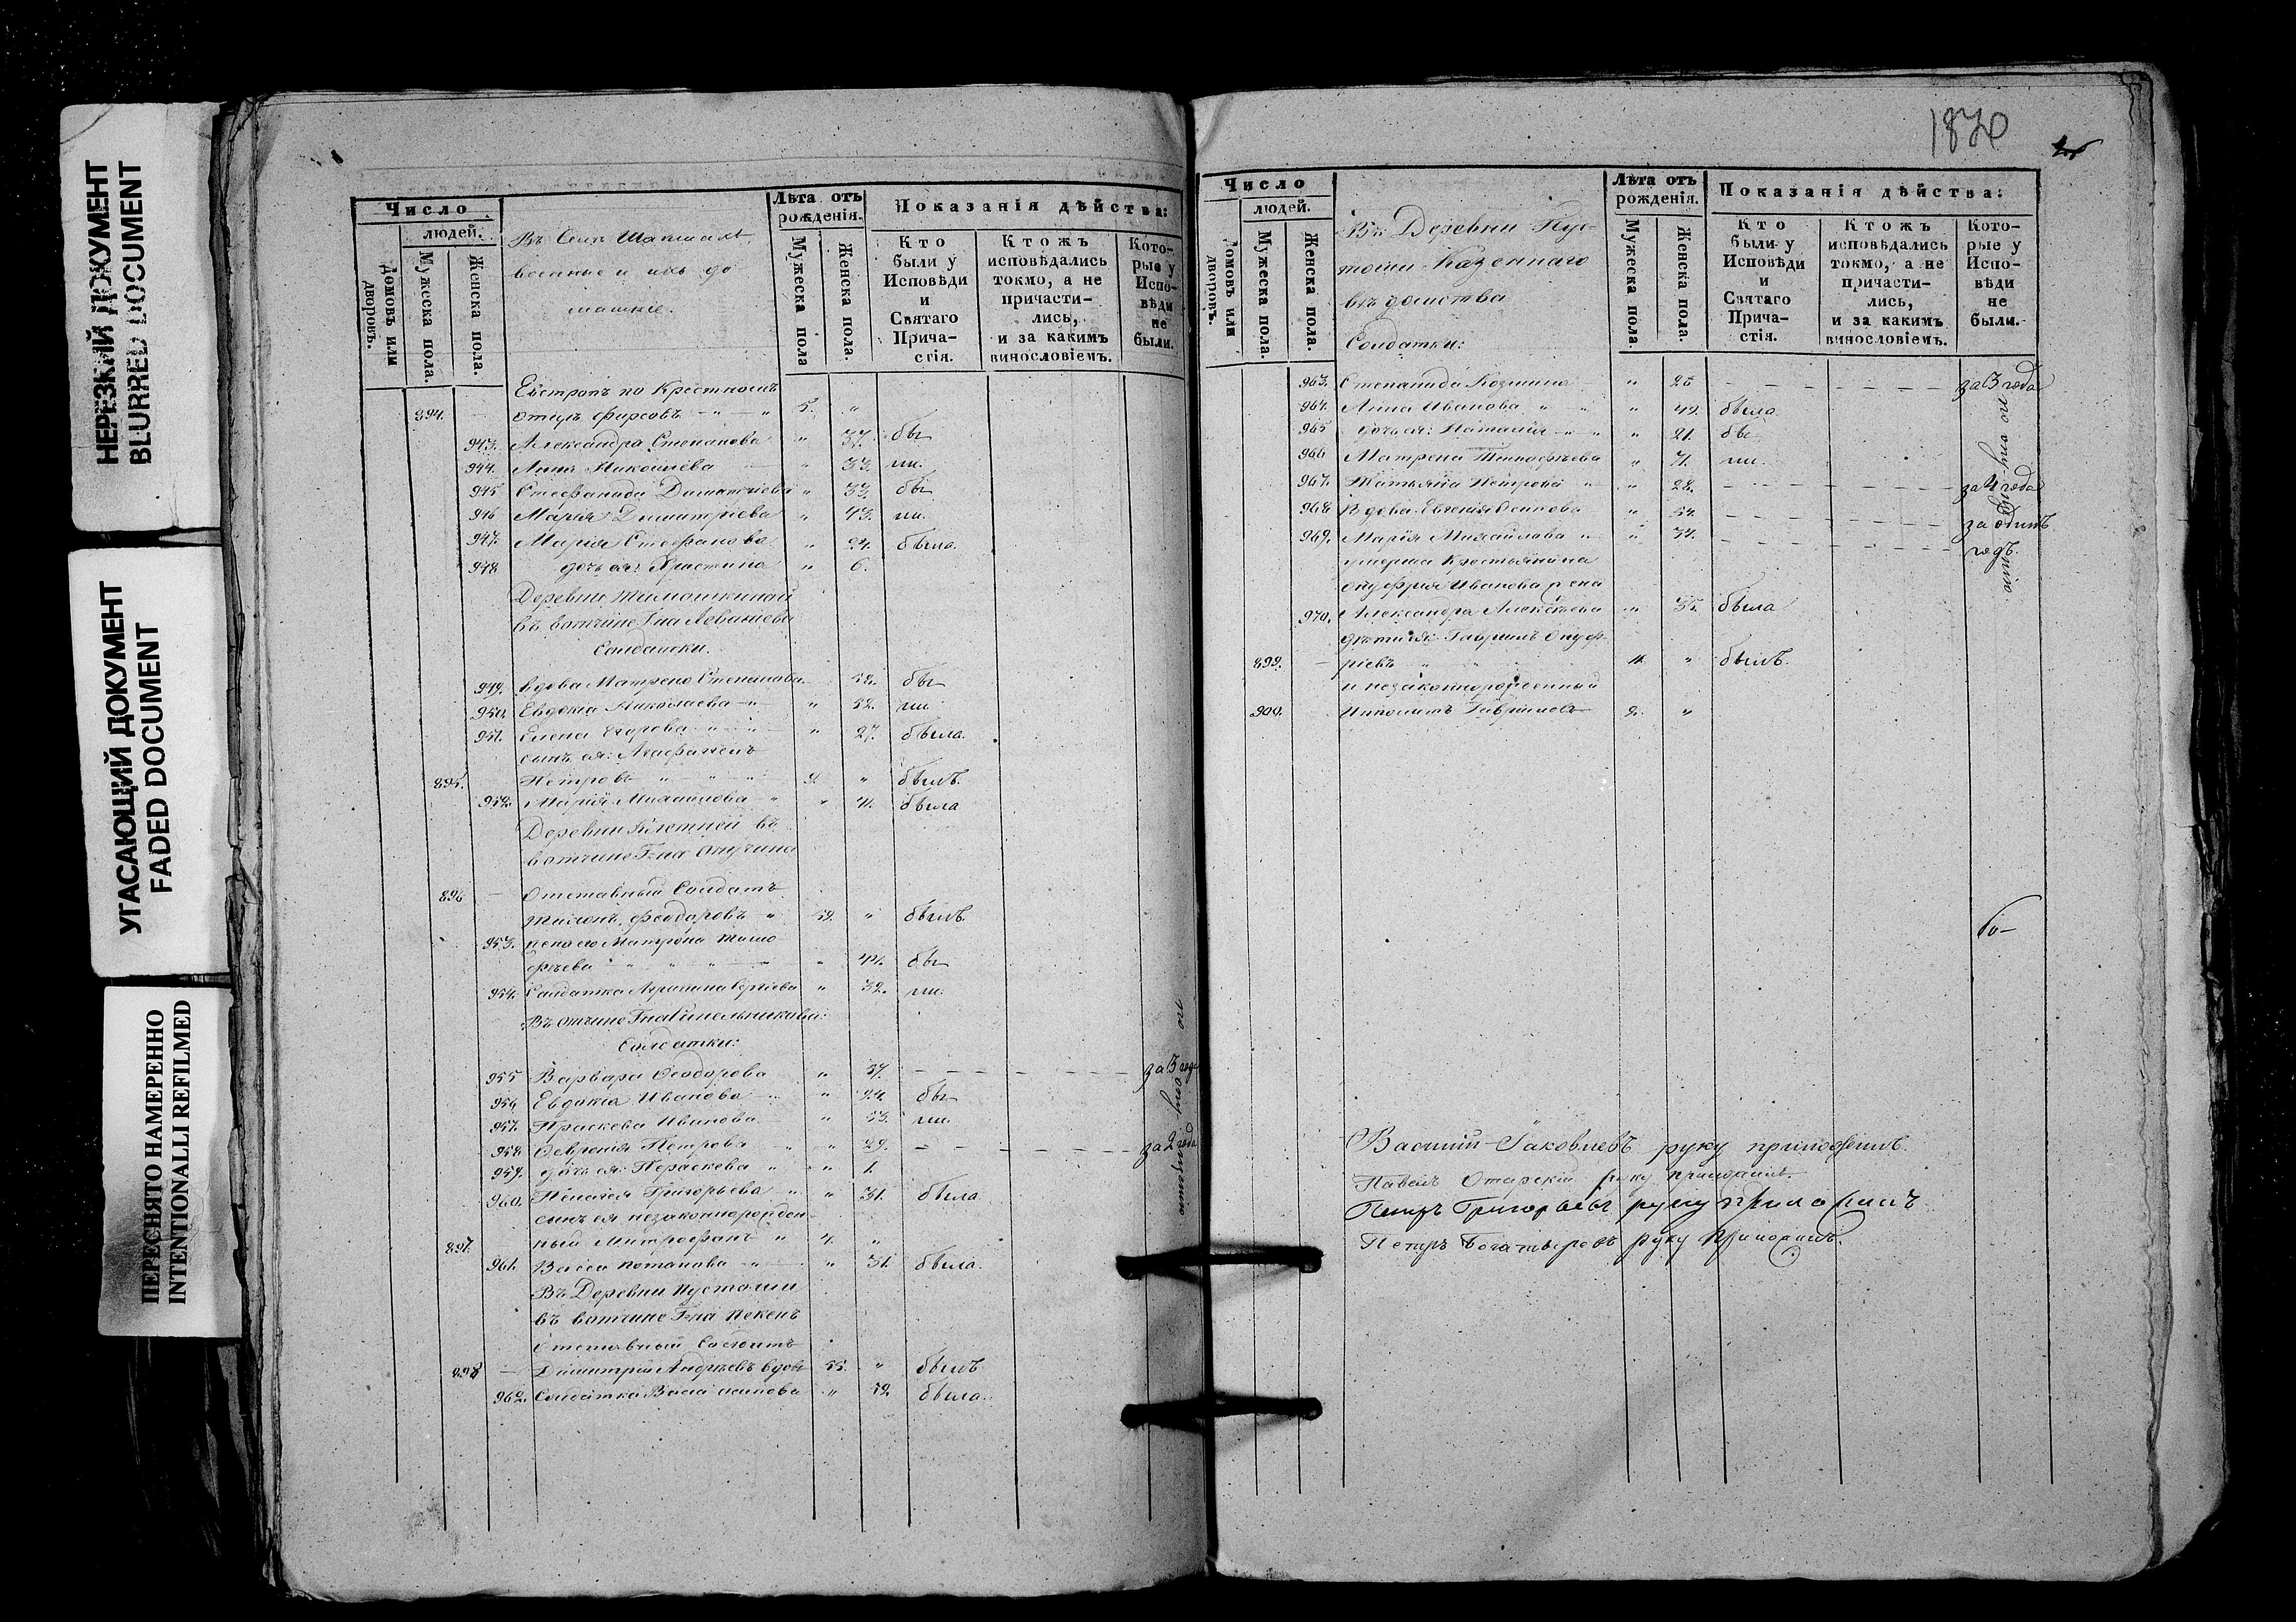 НЕРЕЗКИЙ ДОКУМЕНТ
BLURRED DOCUMENT
УГАСАЮЩИЙ ДОКУМЕНТ
FADED DOCUMENT
ПЕРЕСНЯТО НАМЕРЕННО
INTENTIONALLI REFILMED
Число
людей.
Домовъ или дворовъ.
Мужеска пола.
Женска пола.
Въ Селѣ
военные и ихъ до
машніе.
Лѣта отъ рожденія.
Мужеска пола
Женска пола.
Показанія дѣйства:
Кто были у Исповѣди и Святаго Прича-стія.
Ктожъ исповѣдались токмо, а не причасти-лись, и за какимъ винословіемъ.
Кото-рые у Испо-вѣди не были.
по Крестному
894. — отцѣ Фирсовъ — " — " 5. "
943. Александра Степанова " 37. бы
944. Анна Николаева " 33. ли.
945 Стефанида Димитріева " 33. бы
946 Марія Димитріева " 43. ли.
947. Марія Стефанова " 24. была.
948 дочь ея: Христина " 6.
Деревни Тимошкиной
въ вотчине Г-на Левашева
Солдатки.
949. вдова Матрена 52. бы
950. Евдокіа Николаева — " " 52. ли
951. Елена Егорова " 27. была.
сынъ ея:
895. Петровъ " " " 9. " былъ.
952. Марія Михайлова " " 41. была
Деревни Клетней въ
вотчине Г-на
896 — Отставный Солдатъ
Феодоровъ " 59. " былъ
953. жена его Матрона Тимо
фѣева " 44. бы
954. Солдатка Сергіева " 32. ли.
Въ отчине Г-на
Солдатки:
955 Варвара Феодорова " 37. за 3 года
956 Евдокіа Иванова " 24. бы
957. Праскева Иванова " 53. ли.
958. Февронія Петрова " " 29. за 2 года
959. дочь ея: Параскева " " 1.
960. Пелагея Григорьева " " 31. была
сынъ ея незаконнорожден-
897. ный Митрофанъ " 4. "
961. Васса Потапова " " 31. была.
Въ Деревни Пустоши
въ вотчине Г-на
Отставный Солдатъ
898 — Димитрій Андреевъ вдовъ 55. " былъ
962. Солдатка Васса " 52 была.
по опущенію
1870
Число
людей.
Домовъ или дворовъ.
Мужеска пола.
Женска пола.
Въ Деревни Пус-
тоши Казеннаго
вѣдомства
Солдатки:
Лѣта отъ рожденія.
Мужеска пола.
Женска пола.
Показанія дѣйства:
Кто были у Исповѣди и Святаго Прича-стія.
Ктожъ исповѣдались токмо, а не причасти-лись, и за какимъ винословіемъ.
Кото-рые у Испо-вѣди не были.
963. Степанида Козмина " 25 за 3 года
964. Анна Иванова " " 42. была
965 дочь ея: Наталія " " 21. бы
966 Матрена Тимофеева " 71. ли.
967. Татьяна Петрова " " 28. за 4 года
968 Вдова Евгенія Осипова " 54. за одинъ
969. Марія Михайлова " " 34. годъ.
умерша Крестьянина
Онуфрія Иванова жена
970. Александра Алексѣева " 35. была
дѣти ея: Гавріилъ Онуф-
899. — ріевъ " " " былъ.
и незаконнорожденный
900. Ипполитъ Гавриловъ 2. "
по опущенію
Василій Іаковлевъ руку приложилъ.
Павелъ Отарскій руку приложилъ.
Петръ Григорьевъ руку приложилъ
Петръ Богатыревъ руку приложилъ.